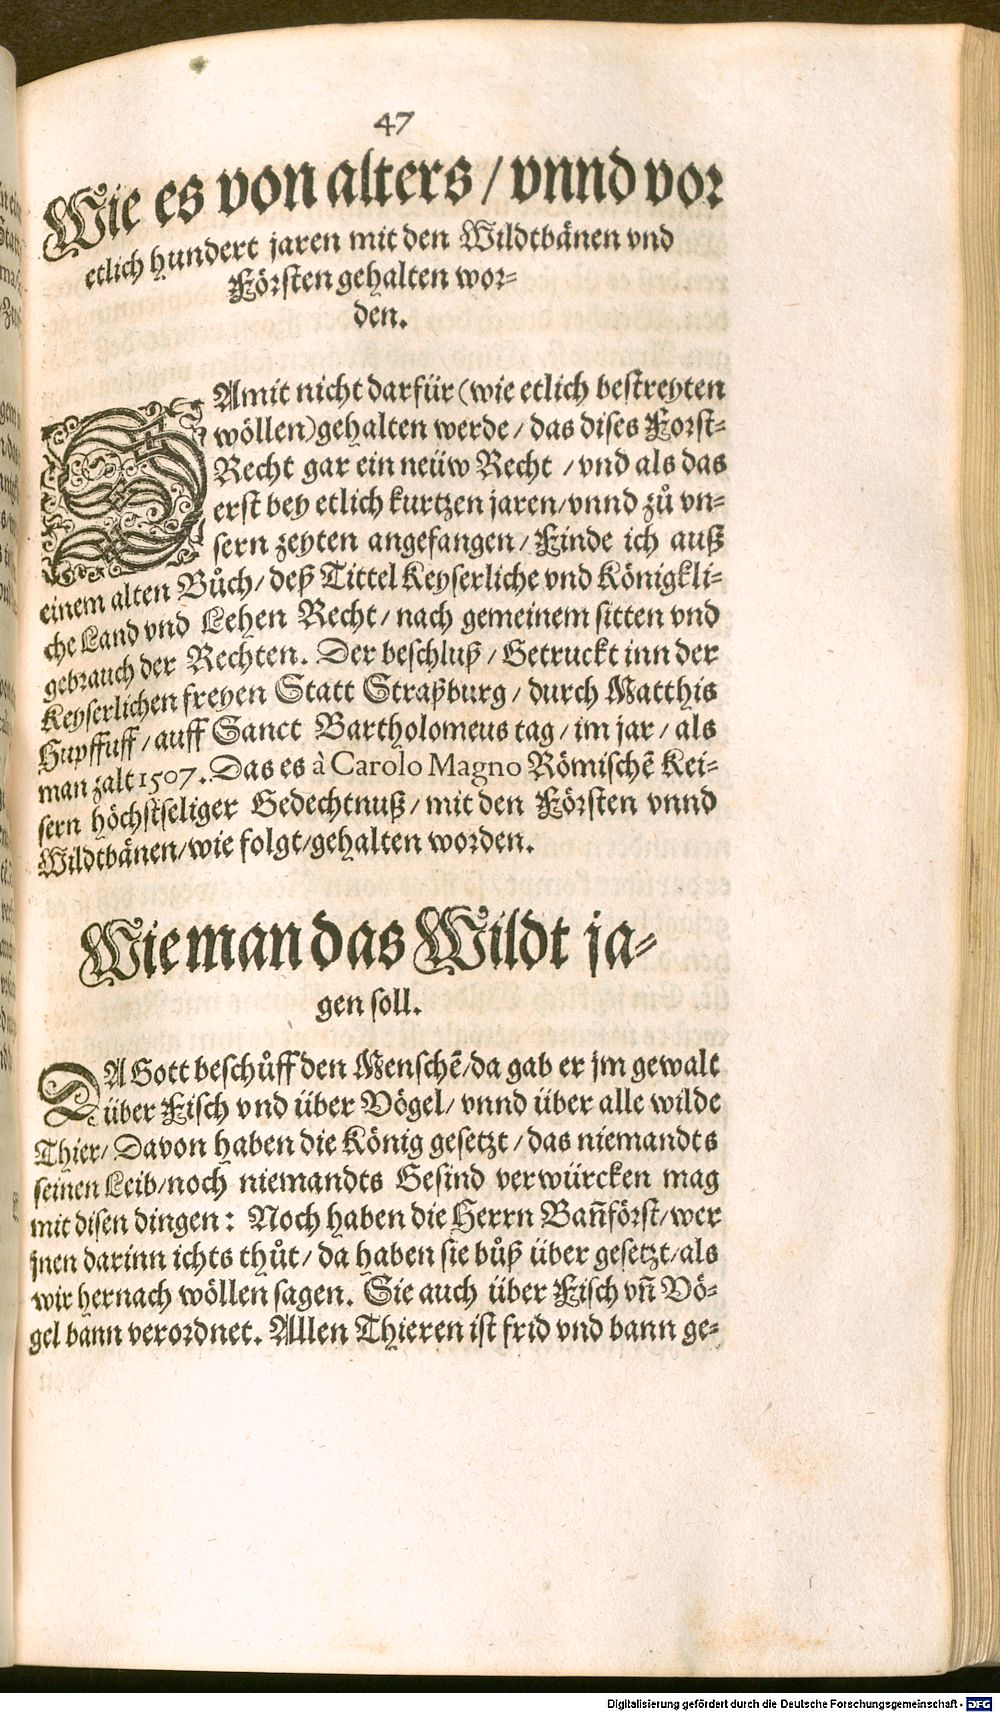 47
Wie es von alters / vnnd vor
etlich hundert jaren mit den Wildtbänen vnd
Försten gehalten wor⸗
den.
DAmit nicht darfür (wie etlich bestreyten
wöllen) gehalten werde / das dises Forst⸗
Recht gar ein neüw Recht / vnd als das
erst bey etlich kurtzen jaren / vnnd zů vn⸗
sern zeyten angefangen / Finde ich auß
einem alten Bůch / deß Tittel Keyserliche vnd Königkli⸗
che Land vnd Lehen Recht / nach gemeinem sitten vnd
gebrauch der Rechten. Der beschluß / Getruckt inn der
Keyserlichen freyen Statt Straßburg / durch Matthis
Hupffuff / auff Sanct Bartholomeus tag / im jar / als
man zalt 1507. Das es à Carolo Magno Römischē Kei⸗
sern höchstseliger Gedechtnuß / mit den Försten vnnd
Wildtbänen / wie folgt / gehalten worden.
Wie man das Wildt ja⸗
gen soll.
DA Gott beschůff den Menschē / da gab er jm gewalt
über Fisch vnd über Vögel / vnnd über alle wilde
Thier / Davon haben die König gesetzt / das niemandts
seinen Leib / noch niemandts Gesind verwürcken mag
mit disen dingen : Noch haben die Herrn Bañförst / wer
jnen darinn ichts thůt / da haben sie bůß über gesetzt / als
wir hernach wöllen sagen. Sie auch über Fisch vñ Vö⸗
gel bann verordnet. Allen Thieren ist frid vnd bann ge⸗
Digitalisierung gefördert durch die Deutsche Forschungsgemeinschaft - DFG